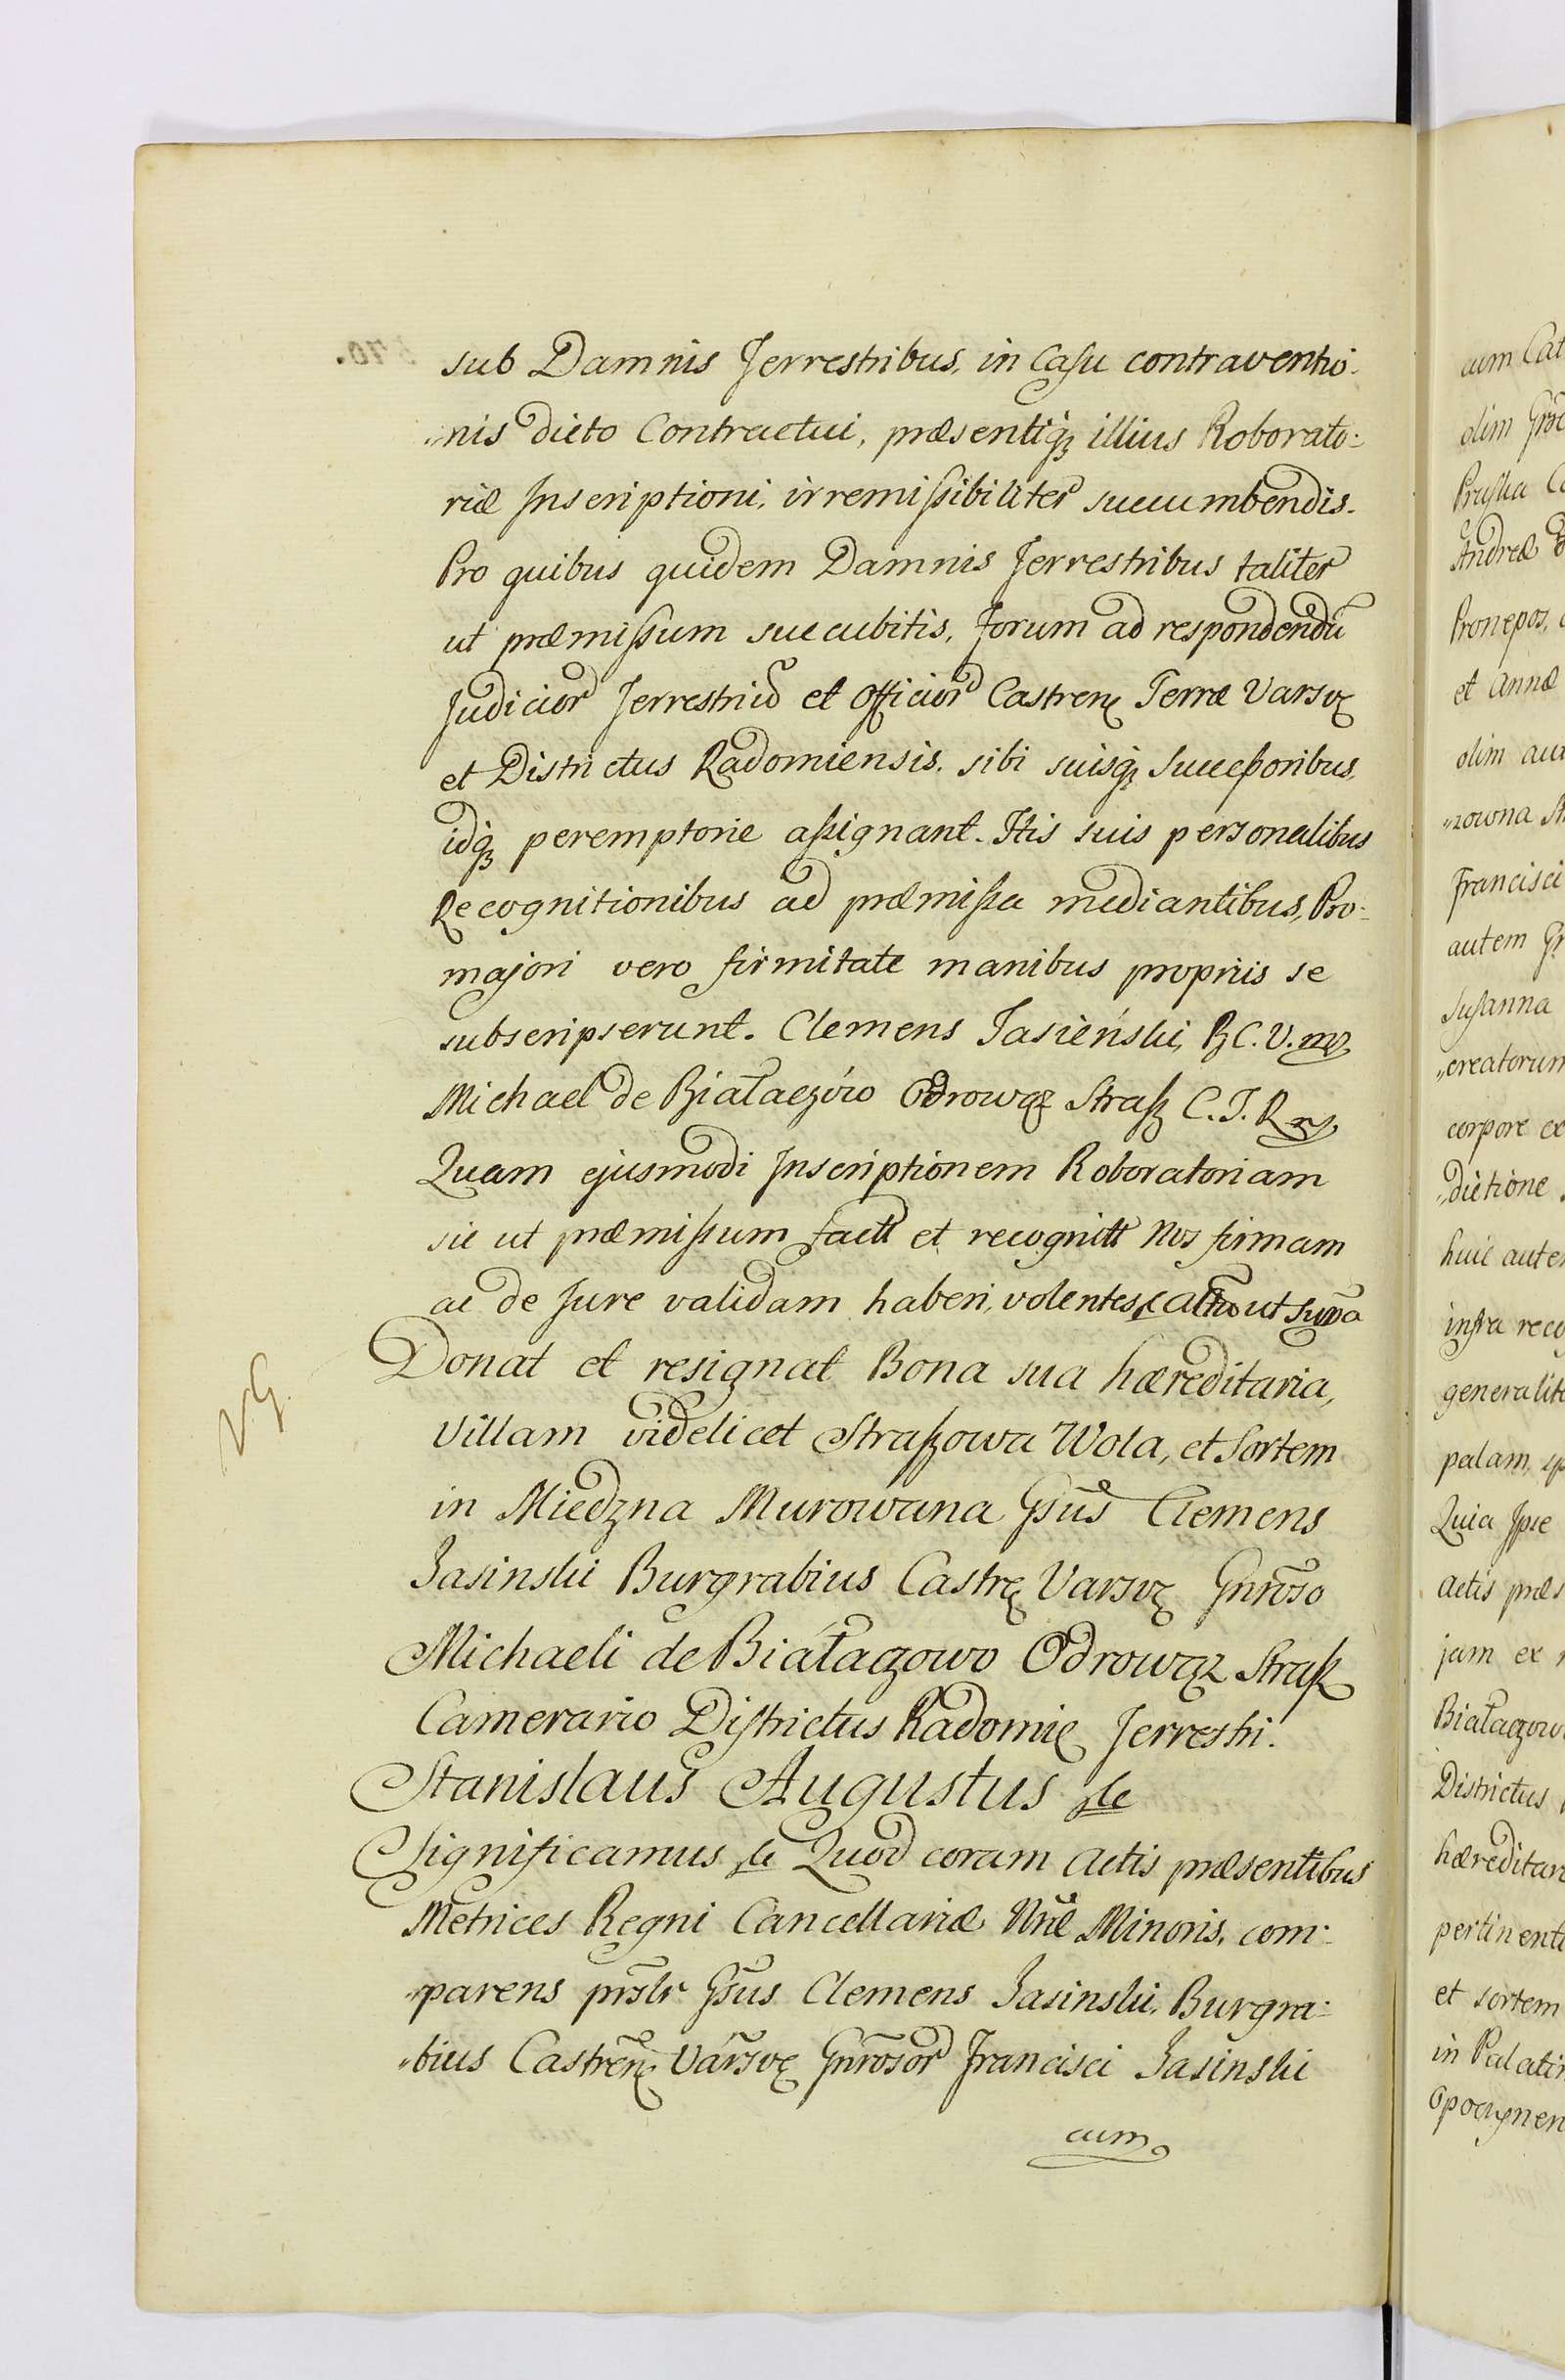 sub Damnis Terrestribus, in Casu contraventio:
„nis dicto Contractui, præsentiq; illius Roborato:
riæ Inscriptioni, irremissibiliter succumbendis.
Pro quibus quidem Damnis Terrestribus taliter
ut præmissum succubitis, Forum ad respondendũ
Judicior Terrestriũ et Officior Castren Terræ Varsv
et Districtus Radomiensis, sibi suisq; Successoribus,
idq; peremptorie assignant. Htis suis personalibus
Recognitionibus ad præmissa mediantibus, Pro:
majori vero firmitate manibus propriis se
subscripserunt. Clemens Jasieński, B. C. V. mp
Michael de Białaczów Odrowąz Strasz C. T. R mp
Quam ejusmodi Inscriptionem Roboratoriam
sic ut præmissum factt et recognitt Nos firmam
ac de Jure validam haberi, volentes, &c. Actũ ut supra
Donat et resignat Bona sua hæreditaria,
Villam videlicet Straszowa Wola, et Sortem
in Miedzna Murowana Gsũs Clemens
Jasinski Burgrabius Castr Varsv Gnroso
Michaeli de Białaczowo Odrowąz Strasz
Camerario Districtus Radomie Terrestri.
V.G.
Stanislaus Augustus &c
Significamus &c Quod coram Actis præsentibus
Metrices Regni Cancellariæ Nræ Minoris, com:
„parens prslr Gsũs Clemens Jasinski, Burgra:
„bius Castren Varsv Gnrosor Francisci Jasinski
cum
cum Cat
olim
Andreæ
Pronepos,
et Annæ
olim
„zowna
Francisci
autem
Susanna
„creatorum
corpore ex
„dictione
huic
infra
palam,
Quia Ipse
Actis præs
jam ex
Białaczow
Districtus
hæreditar
pertinenti
et sortem
in Palatin
Opocznen